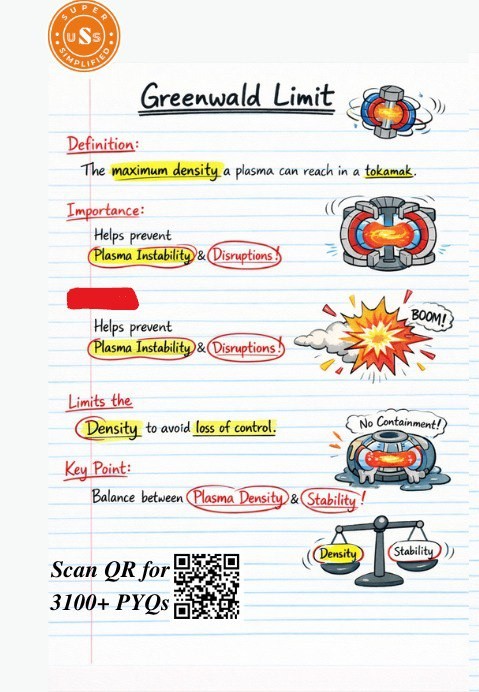 SUPER
USS
SIMPLIFIED
Greenwald Limit
Definition:
The maximum density a plasma can reach in a tokamak.
Importance:
Helps prevent
Plasma Instability & Disruptions!
BOOM!
Helps prevent
Plasma Instability & Disruptions!
Limits the
Density to avoid loss of control.
No Containment!
Key Point:
Balance between Plasma Density & Stability!
Density
Stability
Scan QR for
3100+ PYQs